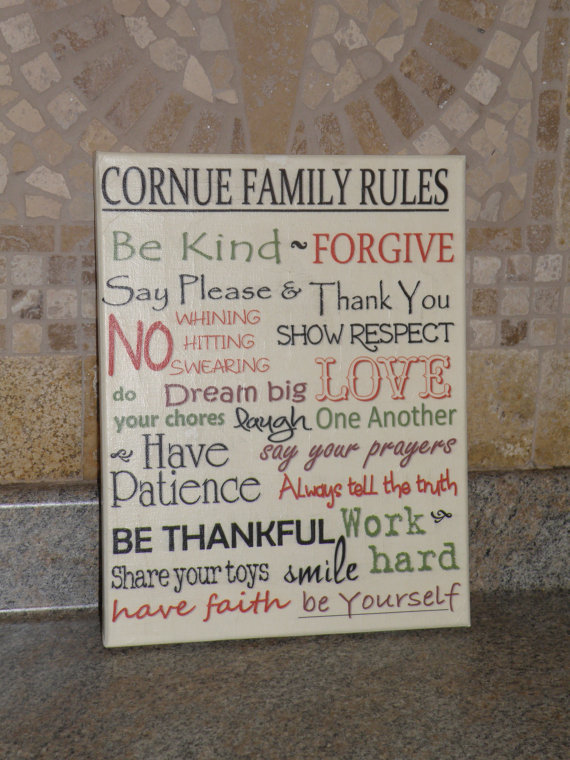 CORNUE FAMILY RULES
Be Kind ~ FORGIVE
Say Please & Thank You
NO WHINING
HITTING
SWEARING
SHOW RESPECT
do your chores
Dream big
LOVE One Another
laugh
~ Have Patience
say your prayers
Always tell the truth
BE THANKFUL
Work hard
Share your toys
smile
have faith
be Yourself